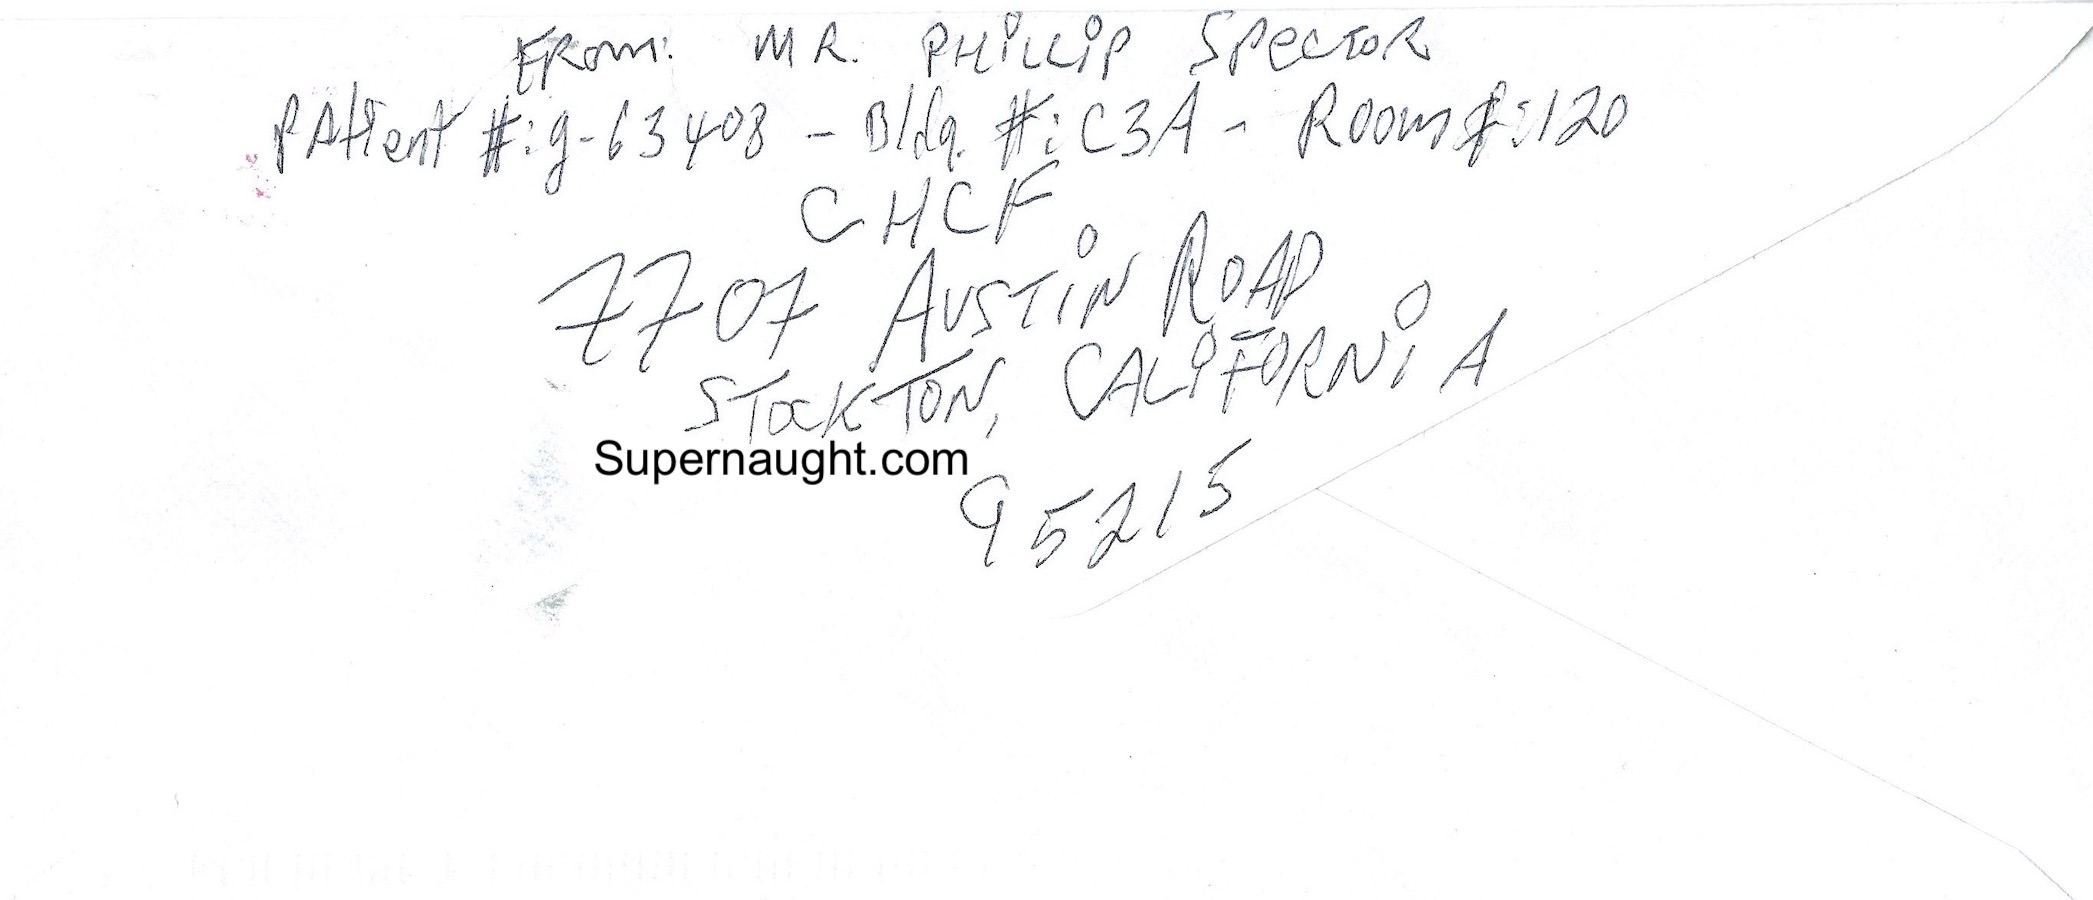 FROM: MR. PHILLIP SPECTOR
PAtient #: g-63408 - Bldg. #: C3A - Room #: 120
CHCF
7707 AUSTIN ROAD
STOCKTON, CALIFORNIA
Supernaught.com
95215